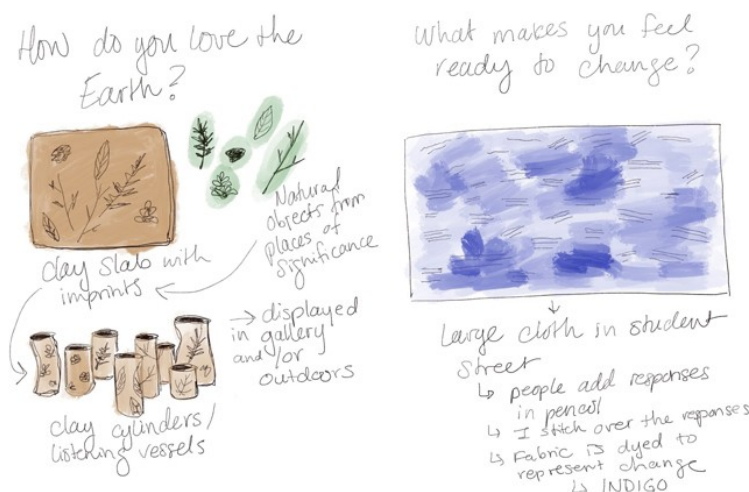 How do you love the
Earth?
Natural
objects from
places of
significance
clay slab with
imprints
→ displayed
in gallery
and/or
outdoors
clay cylinders/
listening vessels
What makes you feel
ready to change?
Large cloth in student
street
↳ people add responses
in pencil
↳ I stitch over the responses
↳ Fabric is dyed to
represent change
↳ INDIGO